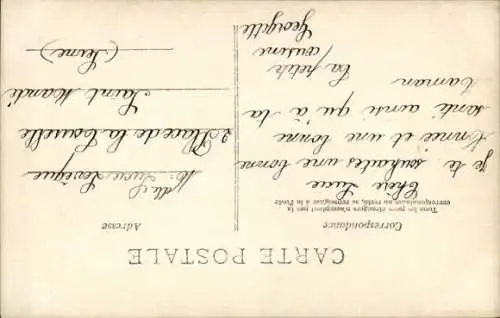 CARTE POSTALE
Correspondance
Tous les pays étrangers n'acceptent pas la
correspondance au recto, se renseigner à la Poste
Chère Lucie
je te souhaites une bonne
Année et une bonne
santé ainsi qu'à ta
Maman
Ta petite
cousine
Georgette
Adresse
Mlle Lucie
Levêque
2 Place de la Tourelle
Saint Mandé
(Seine)